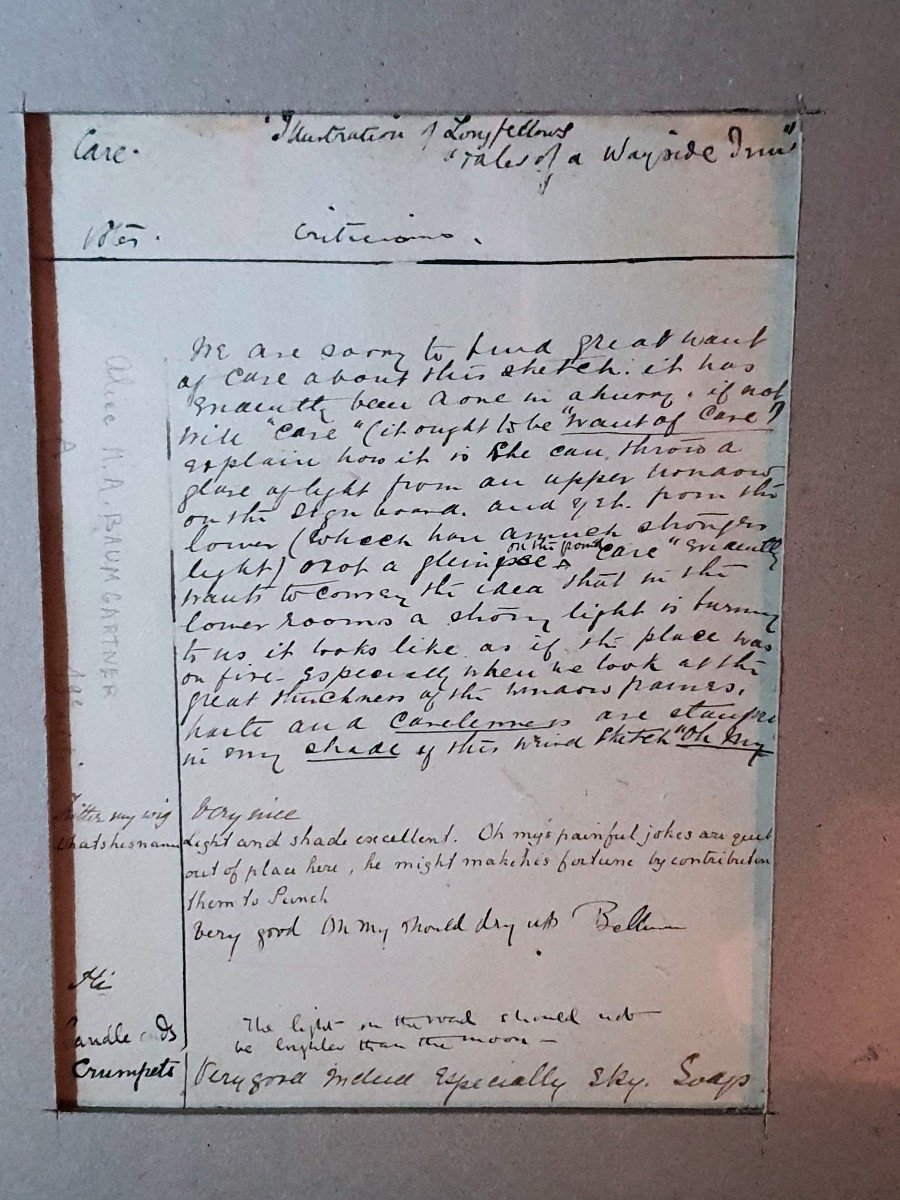 Care.
"Illustration of Longfellows
"Tales of a Wayside Inn"
Votes.
Criticisms.
We are sorry to find great want
of care about this sketch. it has
evidently been done in a hurry. if not
will "Care" (it ought to be "want of Care")
explain how it is she can throw a
glare of light from an upper window
on the sign board. and yet from the
lower (which has a much stronger
light) not a glimpse on the pond "Care" evidently
wants to convey the idea that in the
lower rooms a strong light is burning
to us it looks like as if the place was
on fire - Especially when we look at the
great thickness of the window frames.
haste and carelessness are
in every shade of this weird sketch "Oh My
Alice M.A. BAUMGARTNER
my wig
Very nice
Whatshisname
Light and shade excellent. Oh my's painful jokes are quite
out of place here, he might make his fortune by contributing
them to Punch
Very good Oh my should dry up
Candle ends
The light on the road should not
be brighter than the moon -
Crumpets
Very good indeed especially sky. Soap